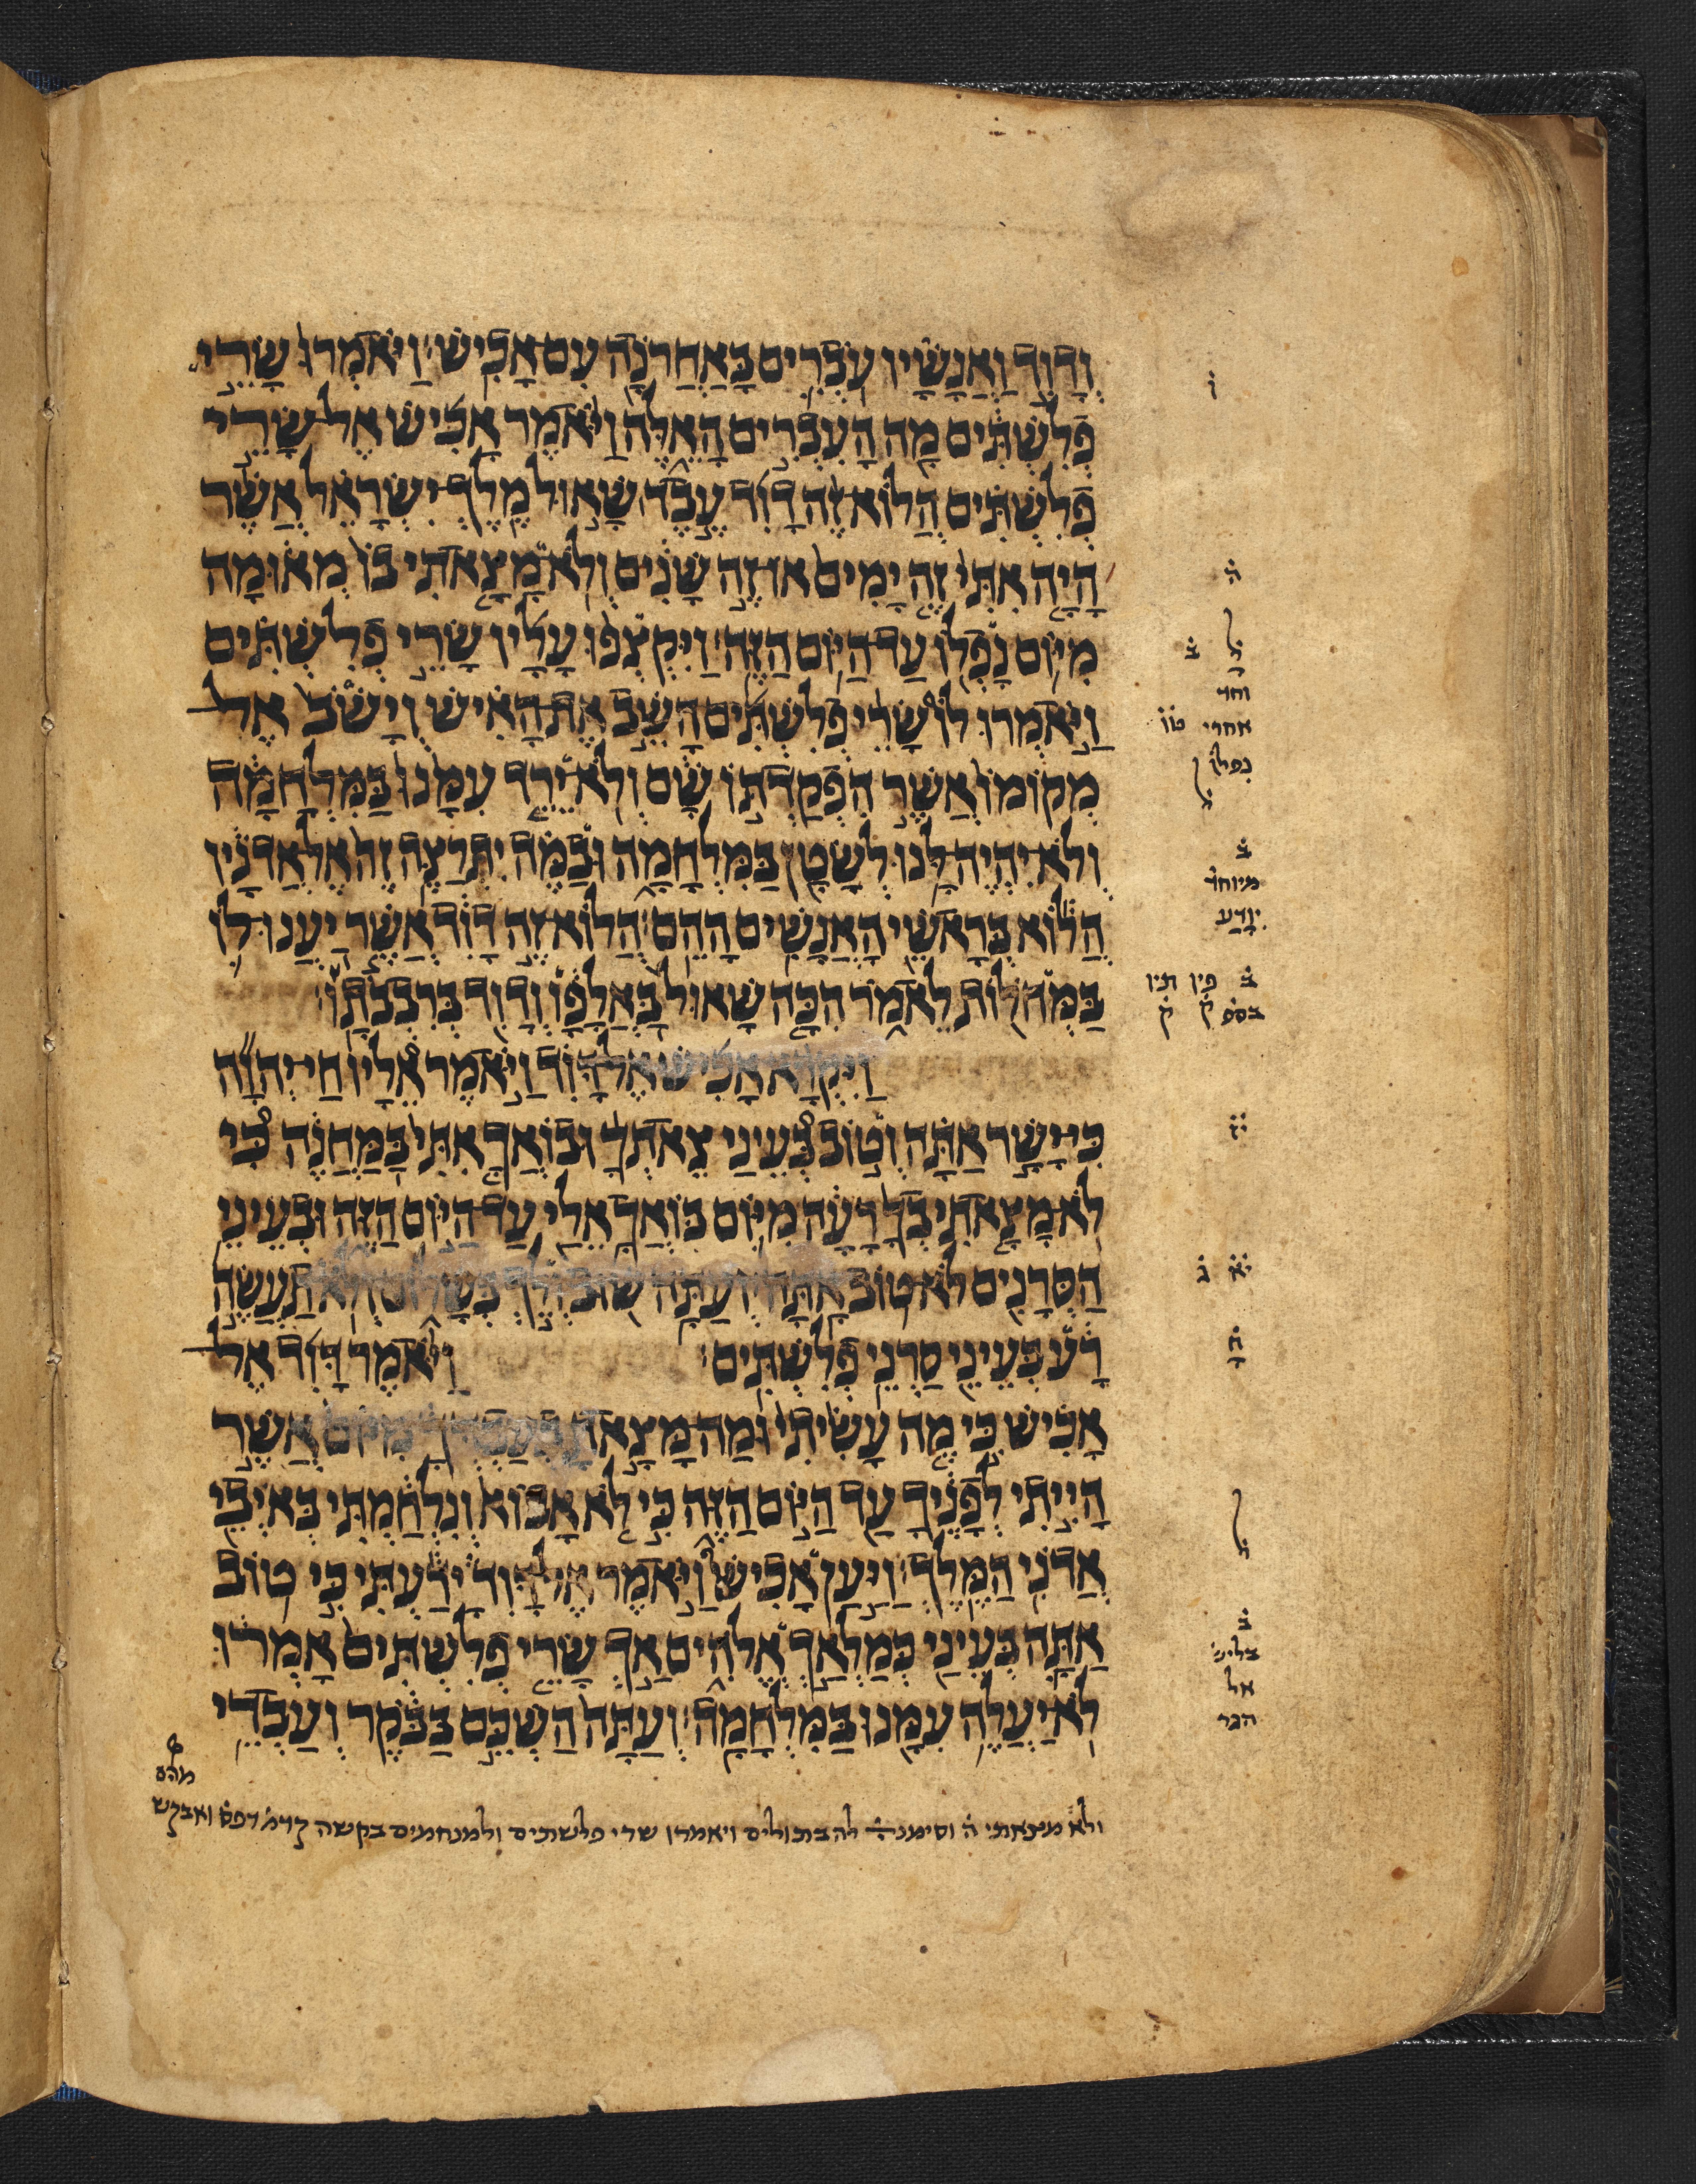 וְדָוִד וַאֲנָשָׁיו עֹבְרִים בָּאַחֲרֹנָה עִם אָכִישׁ׃ וַיֹּאמְרוּ שָׂרֵי
פְלִשְׁתִּים מָה הָעִבְרִים הָאֵלֶּה וַיֹּאמֶר אָכִישׁ אֶל שָׂרֵי
פְלִשְׁתִּים הֲלוֹא זֶה דָוִד עֶבֶד שָׁאוּל מֶלֶךְ יִשְׂרָאֵל אֲשֶׁר
הָיָה אִתִּי זֶה יָמִים אוֹ זֶה שָׁנִים וְלֹא מָצָאתִי בוֹ מְאוּמָה
מִיּוֹם נָפְלוֹ עַד הַיּוֹם הַזֶּה׃ וַיִּקְצְפוּ עָלָיו שָׂרֵי פְלִשְׁתִּים
וַיֹּאמְרוּ לוֹ שָׂרֵי פְלִשְׁתִּים הָשֵׁב אֶת הָאִישׁ וְיָשֹׁב אֶל
מְקוֹמוֹ אֲשֶׁר הִפְקַדְתּוֹ שָׁם וְלֹא יֵרֵד עִמָּנוּ בַּמִּלְחָמָה
וְלֹא יִהְיֶה לָּנוּ לְשָׂטָן בַּמִּלְחָמָה וּבַמֶּה יִתְרַצֶּה זֶה אֶל אֲדֹנָיו
הֲלוֹא בְּרָאשֵׁי הָאֲנָשִׁים הָהֵם׃ הֲלוֹא זֶה דָוִד אֲשֶׁר יַעֲנוּ לוֹ
בַּמְּחֹלוֹת לֵאמֹר הִכָּה שָׁאוּל בַּאֲלָפָיו וְדָוִד בְּרִבְבֹתָיו׃
וַיִּקְרָא אָכִישׁ אֶל דָּוִד וַיֹּאמֶר אֵלָיו חַי יְהוָה
כִּי יָשָׁר אַתָּה וְטוֹב בְּעֵינַי צֵאתְךָ וּבֹאֲךָ אִתִּי בַּמַּחֲנֶה כִּי
לֹא מָצָאתִי בְךָ רָעָה מִיּוֹם בֹּאֲךָ אֵלַי עַד הַיּוֹם הַזֶּה וּבְעֵינֵי
הַסְּרָנִים לֹא טוֹב אָתָּה׃ וְעַתָּה שׁוּב וְלֵךְ בְּשָׁלוֹם וְלֹא תַעֲשֶׂה
רָע בְּעֵינֵי סַרְנֵי פְלִשְׁתִּים׃ וַיֹּאמֶר דָּוִד אֶל
אָכִישׁ כִּי מֶה עָשִׂיתִי וּמַה מָּצָאתָ בְעַבְדְּךָ מִיּוֹם אֲשֶׁר
הָיִיתִי לְפָנֶיךָ עַד הַיּוֹם הַזֶּה כִּי לֹא אָבוֹא וְנִלְחַמְתִּי בְּאֹיְבֵי
אֲדֹנִי הַמֶּלֶךְ׃ וַיַּעַן אָכִישׁ וַיֹּאמֶר אֶל דָּוִד יָדַעְתִּי כִּי טוֹב
אַתָּה בְּעֵינַי כְּמַלְאַךְ אֱלֹהִים אַךְ שָׂרֵי פְלִשְׁתִּים אָמְרוּ
לֹא יַעֲלֶה עִמָּנוּ בַּמִּלְחָמָה׃ וְעַתָּה הַשְׁכֵּם בַּבֹּקֶר וְעַבְדֵי
ו
ה
ל ב
וחד
אחרי טו
נפלו
ל
ב
מיוחד
יודע
ב פיו תיו
בספ ק ק
יז
יא ג
ח
ל
ב
בליש
אל
הגר
ולא מצאתי ה וסימנה להבתולים ויאמרו שרי פלשתים ולמנחמים בקשה קדמ דפס ואבקש
מהם